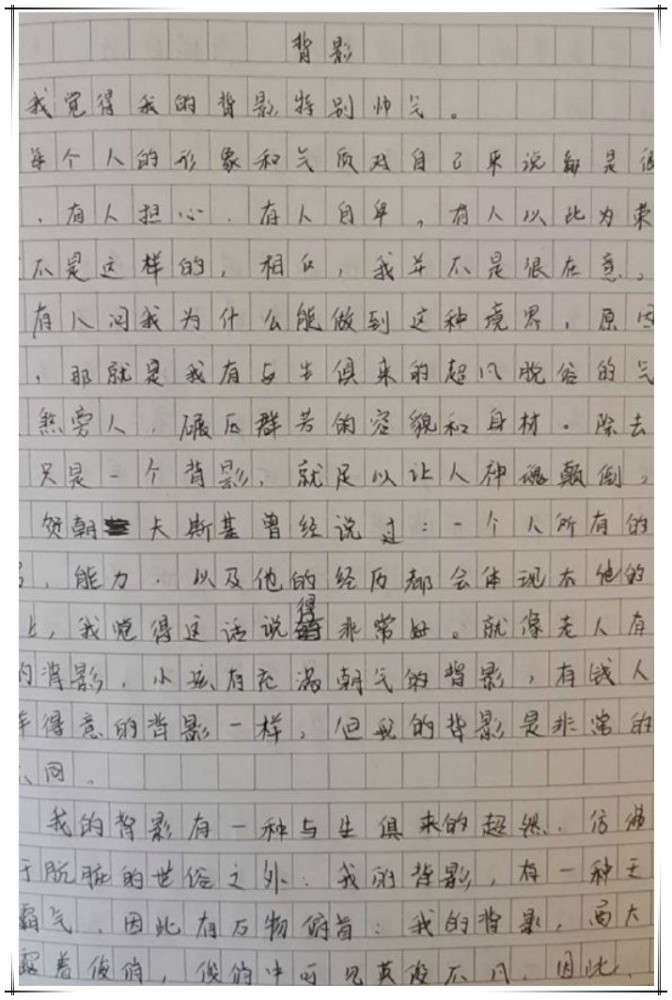 背影
我觉得我的背影特别帅气。
每个人的形象和气质对自己来说都是很
，有人担心，有人自卑，有人以此为荣
不是这样的，相反，我并不是很在意。
有人问我为什么能做到这种境界，原因
，那就是我有与生俱来的超凡脱俗的气
煞旁人，碾压群芳的容貌和身材。除去
只是一个背影，就足以让人神魂颠倒。
贺朝夫斯基曾经说过：一个人所有的
，能力，以及他的经历都会体现在他的
上，我觉得这话说得非常好。就像老人有
的背影，小孩有充满朝气的背影，有钱人
得意的背影一样，但我的背影是非常的
不同。
我的背影有一种与生俱来的超然，仿佛
于肮脏的世俗之外；我的背影，有一种王
霸气，因此有万物俯首；我的背影，高大
露着俊俏，俊俏中可见英俊不凡，因此，